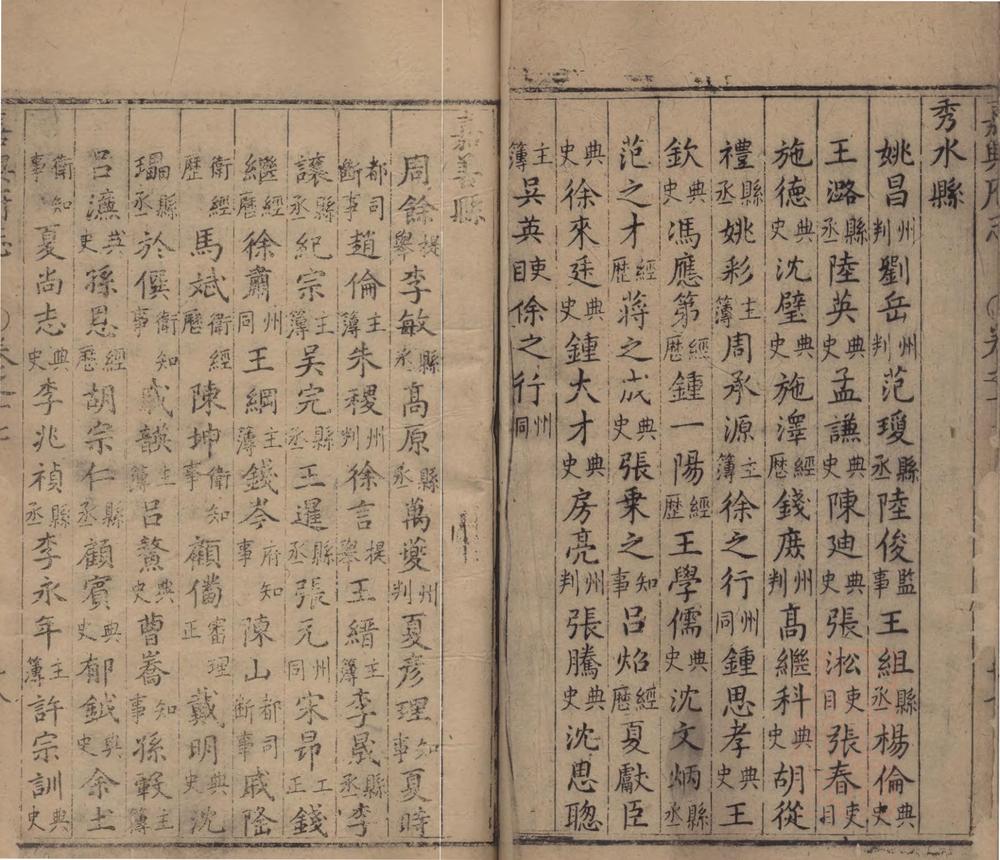 秀水縣
姚昌州判劉岳州判范瓊縣丞陸俊監事王組縣丞楊倫典史
王潞縣丞陸英典史孟謙典史陳廸典史張淞吏目張春吏目
施德典史沈璧典史施澤經歷錢庻州判高繼科典史胡從
禮縣丞姚彩主簿周承源主簿徐之行州同鍾思孝典史王
欽典史馮應第經歷鍾一陽經歷王學儒典史沈文炳縣丞
范之才經歷蔣之成典史張秉之知事呂炤經歷夏獻臣
典史徐來廷典史鍾大才典史房亮州判張騰典史沈思聰
主簿吳英吏目徐之行州同
嘉善縣
周餘提舉李敏縣丞高原縣丞萬燮州判夏彥理知事夏時
都司斷事趙倫主簿朱稷州判徐言提舉王縉主簿李晟縣丞李
讓縣丞紀宗主簿吳完縣丞王暹縣丞張元州同宋昂工正錢
繼經歷徐肅州同王綱主簿錢岑府知事陳山都司斷事戚隆
衛經歷馬斌衛經歷陳坤衛知事顧儅審理正戴明典史沈
瑥縣丞於僎衛知事戚韺主簿呂鰲典史曹喬知事孫毅主簿
呂濂典史孫恩經歷胡宗仁縣丞顧賓典史郁鉞典史余士
衛知事夏尚志典史李兆禎縣丞李永年主簿許宗訓典史